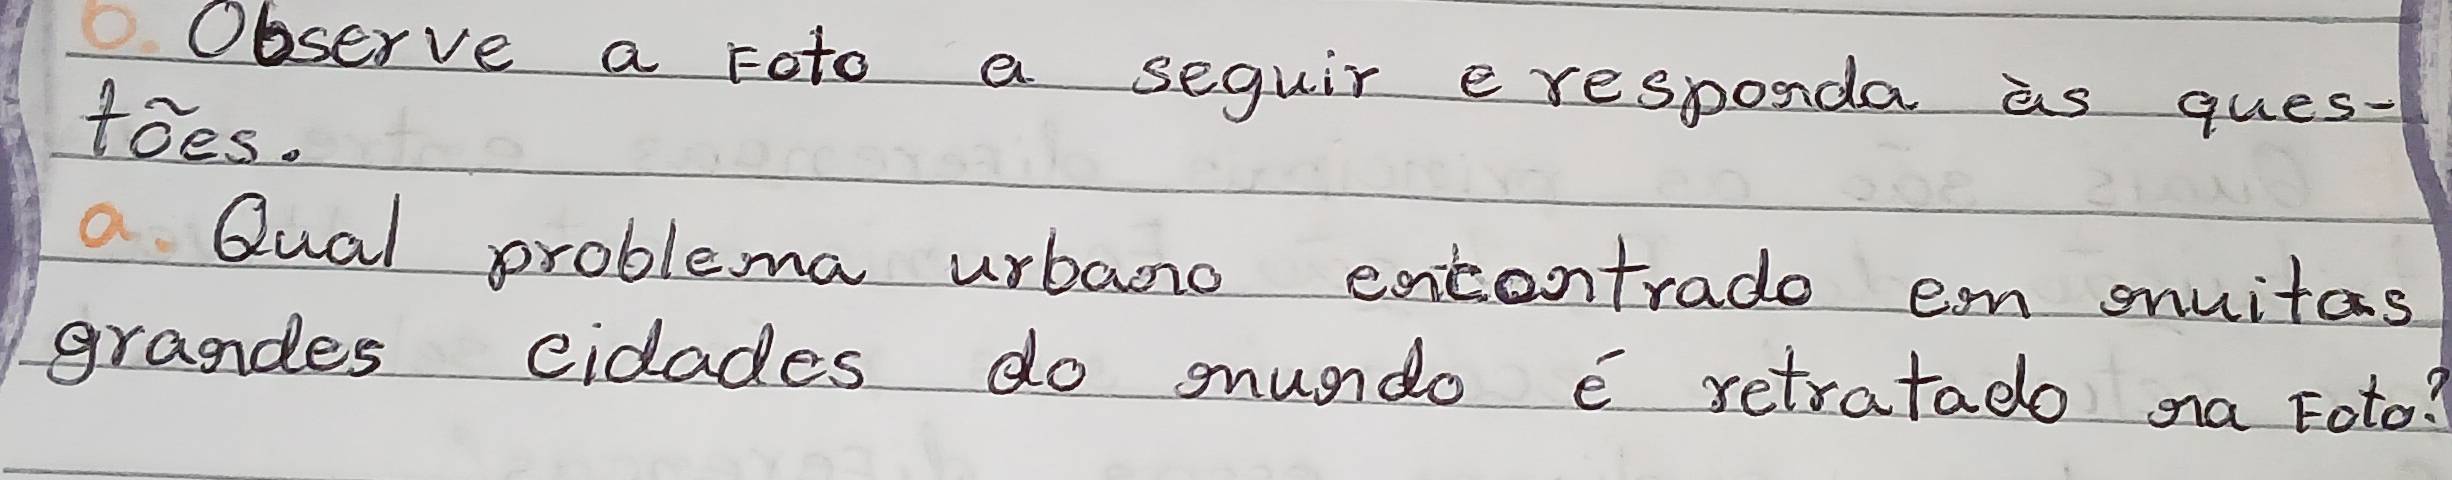 6. Observe a Foto a seguir e responda às ques-
tões.
a. Qual problema urbano encontrado em muitas
grandes cidades do mundo é retratado na Foto?